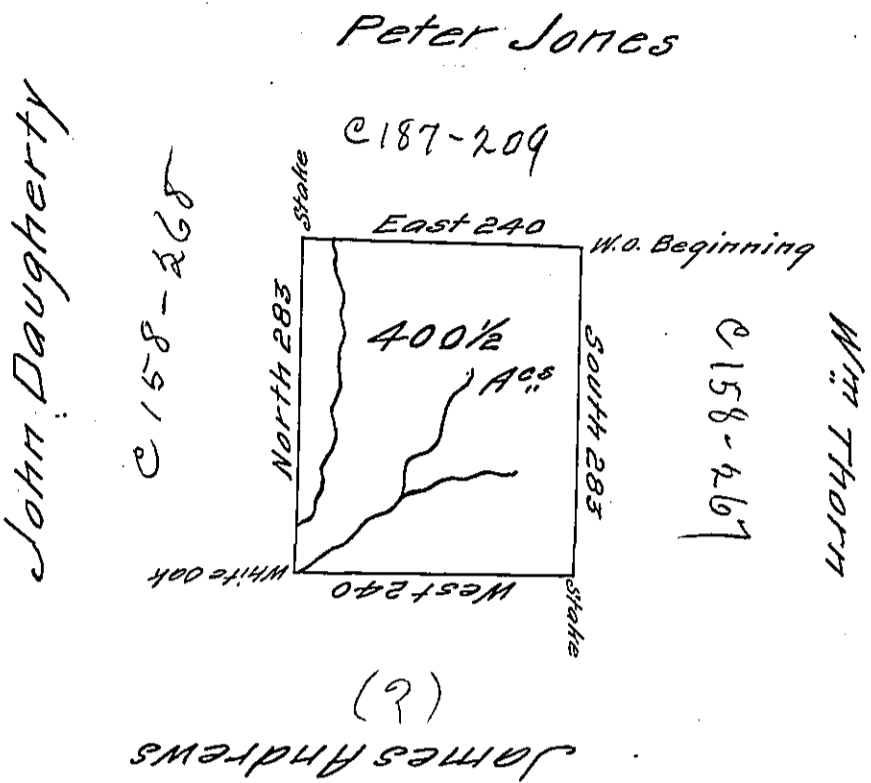 Peter Jones
C187-209
John Daugherty
C158-268
Stake
East 240
W.O. Beginning
North 283
400 1/2
Acs
South 283
C158-267
Wm Thorn
White Oak
West 240
Stake
(?)
James Andrews